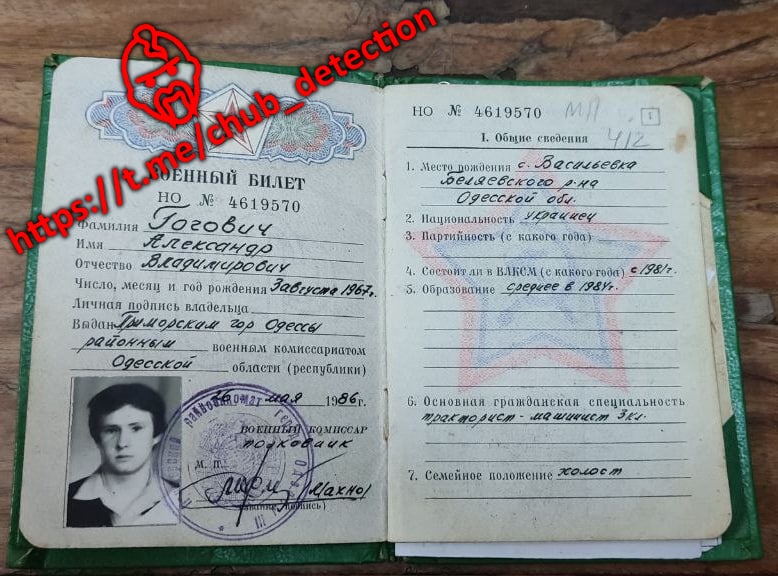 https://t.me/chub_detection
ВОЕННЫЙ БИЛЕТ
НО № 4619570
Фамилия Гогович
Имя Александр
Отчество Владимирович
Число, месяц и год рождения 3 августа 1967г.
Личная подпись владельца
Выдан Приморским гор Одессы
районным военным комиссариатом
Одесской области (республики)
26 мая 1986г.
ВОЕННЫЙ КОМИССАР
полковник
М. П.
(Махно)
НО № 4619570
МП
412
1
I. Общие сведения
1. Место рождения с. Васильевка
Беляевского р-на
Одесской обл.
2. Национальность украинец
3. Партийность (с какого года)
4. Состоит ли в ВЛКСМ (с какого года) с 1981г.
5. Образование среднее в 1984г.
6. Основная гражданская специальность
тракторист-машинист 3кл.
7. Семейное положение холост